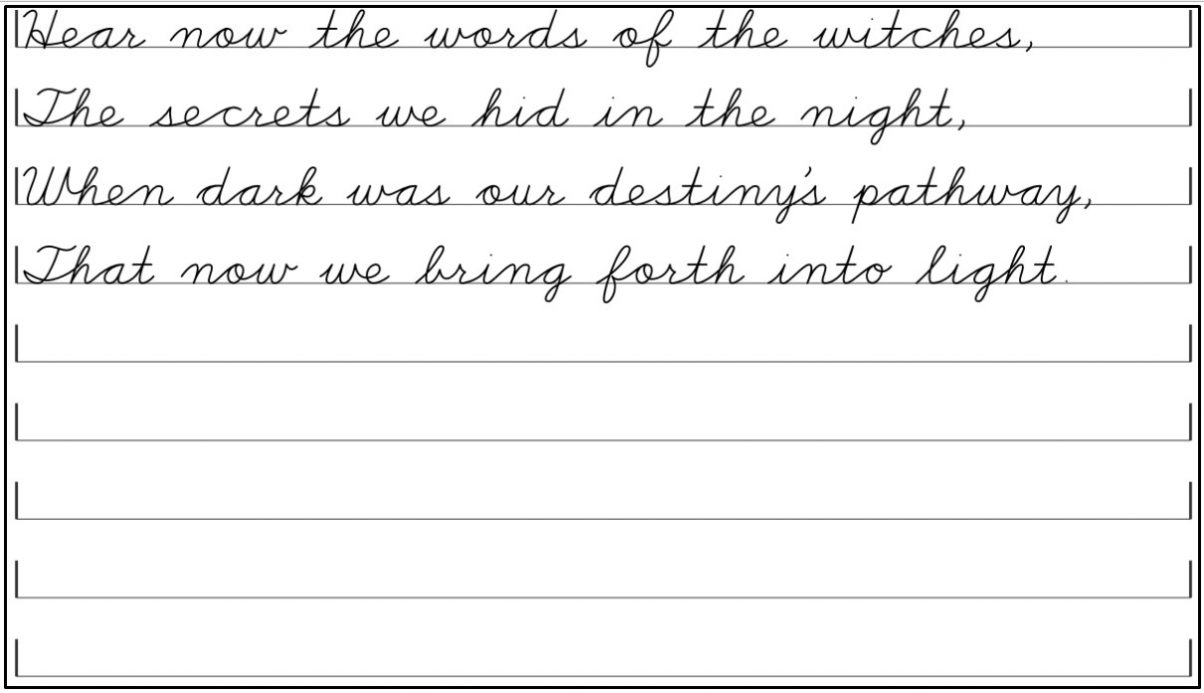 Hear now the words of the witches,
The secrets we hid in the night,
When dark was our destiny's pathway,
That now we bring forth into light.